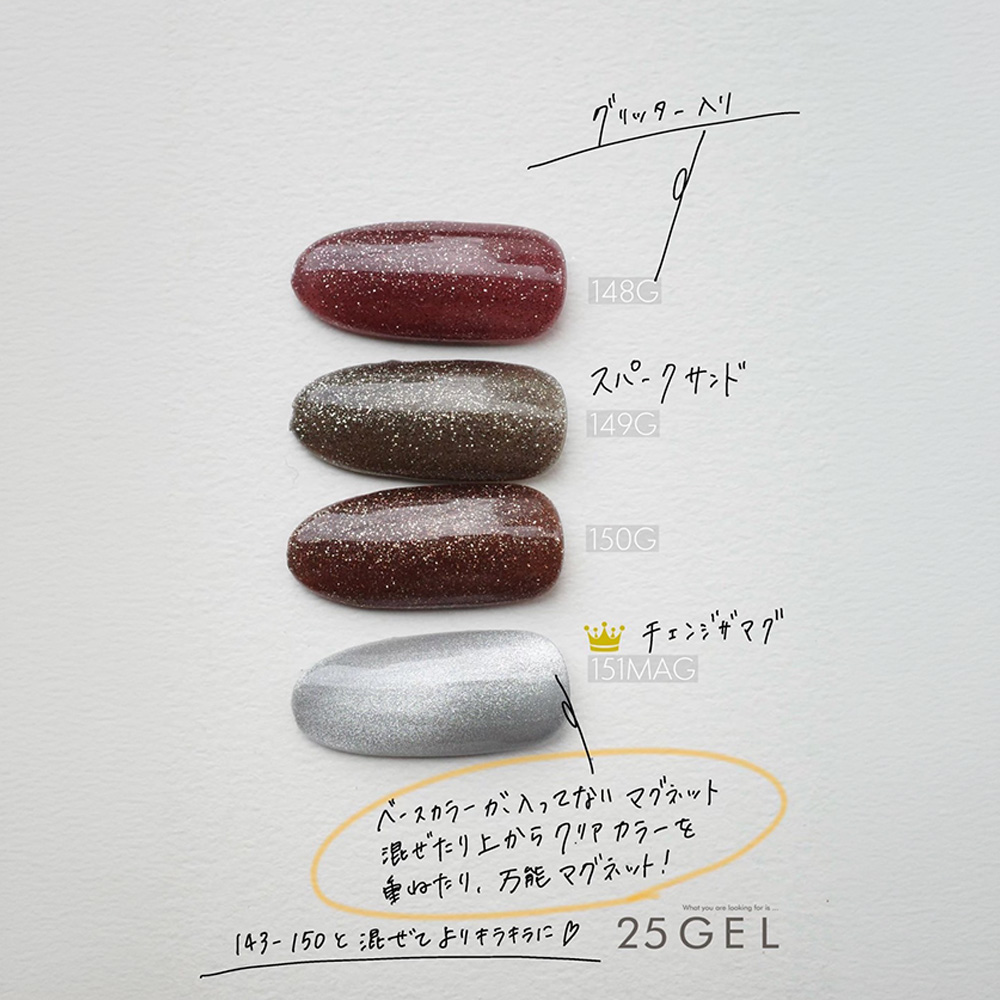 グリッター入り
148G
スパークサンド
149G
150G
チェンジザマグ
151MAG
ベースカラーが入ってない マグネット
混ぜたり上から クリア カラーを
重ねたり、万能 マグネット!
What you are looking for is ...
25GEL
143-150と 混ぜて よりキラキラに♡